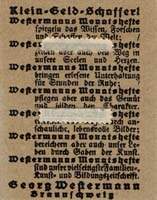 Klein-Geld-Schusserl
Westermanns Monatshefte
spiegeln das Wissen, Forschen
Westermanns
den Weg in
unsere Seelen und Herzen.
Westermanns Monatshefte
bringen erlesene Unterhaltung
für Stunden der Ruhe.
Westermanns Monatshefte
pflegen aber auch das Gemüt
und bilden den Charakter.
Westermanns
schauliche, lebensvolle Bilder.
Westermanns Monatshefte
bereichern aber auch unser Leben
durch Gaben der Kunst.
Westermanns Monatshefte
sind unser vielseitigstes Familien-,
Kunst- und Bildungszeitschrift.
Georg Westermann
Braunschweig